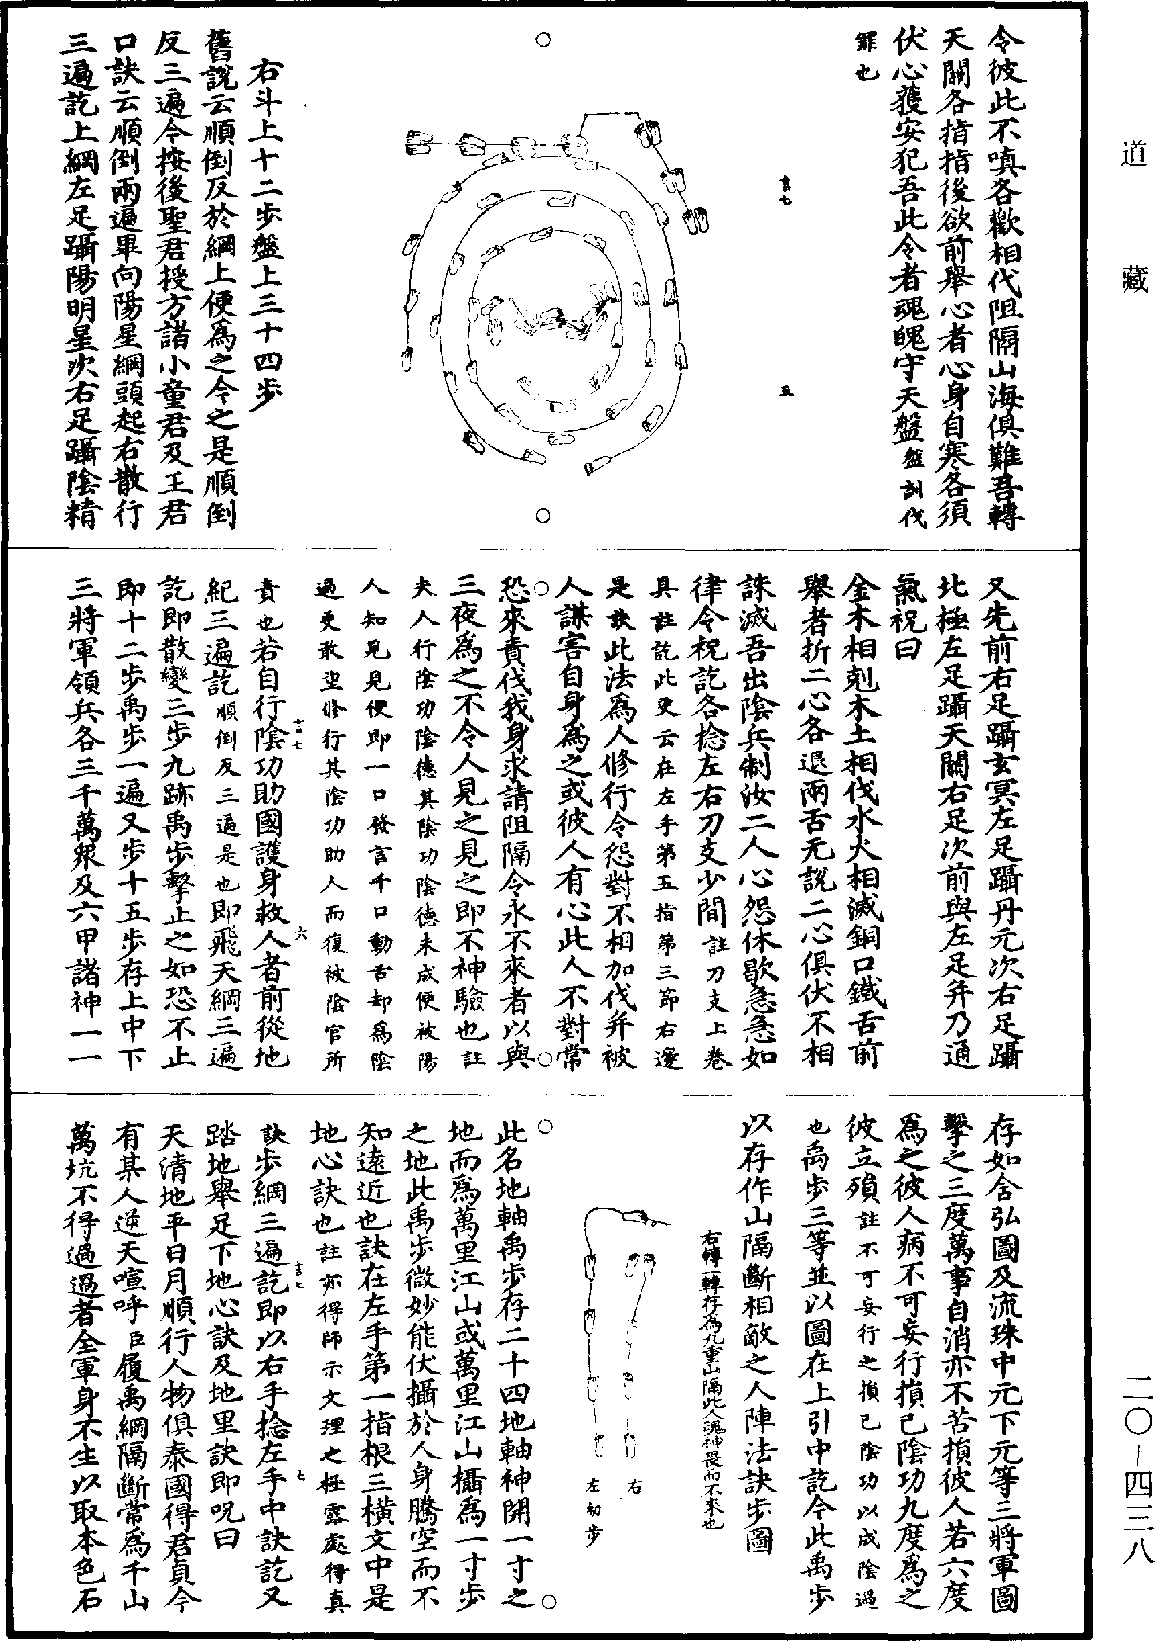 道藏
二〇—四三八
令彼此不嗔各歡相代阻隔山海俱難吾轉
天關各指指後欲前舉心者心身自寒各須
伏心獲安犯吾此令者魂魄守天盤盤訣伐
罪也
言七
五
右斗上十二步盤上三十四步
舊說云順倒反於綱上便爲之今之是順倒
反三遍令按後聖君授方諸小童君及王君
口訣云順倒兩遍畢向陽星綱頭起右散行
三遍訖上綱左足躡陽明星次右足躡陰精
又先前右足躡玄冥左足躡丹元次右足躡
北極左足躡天關右足次前與左足并乃通
氣祝曰
金木相剋木土相伐水火相滅銅口鐵舌前
舉者折二心各退兩舌无說二心俱伏不相
誅滅吾出陰兵制汝二人心怨休歇急急如
律令祝訖各捻左右刀支少間註刀支上卷
具註訖此更云在左手第五指第三節右邊
是訣此法爲人修行令怨對不相加伐并被
人謀害自身爲之或彼人有心此人不對常
恐來責伐我身求請阻隔令永不來者以與
三夜爲之不令人見之見之即不神驗也註
夫人行陰功陰德其陰功陰德未成便被陽
人知見見便即一口發言千口動舌却爲陰
過更敢望修行其陰功助人而復被陰官所
責也若自行陰功助國護身救人者前從地
言七
六
紀三遍訖順倒反三遍是也即飛天綱三遍
訖即散變三步九跡禹步擊止之如恐不止
即十二步禹步一遍又步十五步存上中下
三將軍領兵各三千萬衆及六甲諸神一一
存如含弘圖及流珠中元下元等三將軍圖
擊之三度萬事自消亦不苦損彼人若六度
爲之彼人病不可妄行損己陰功九度爲之
彼立殞註不可妄行之損己陰功以成陰過
也禹步三等並以圖在上引中訖今此禹步
以存作山隔斷相敵之人陣法訣步圖
右轉一轉存爲九重山隔此人魂神畏而不來也
右
左初步
此名地軸禹步存二十四地軸神開一寸之
地而爲萬里江山或萬里江山攝爲一寸步
之地此禹步微妙能伏攝於人身騰空而不
知遠近也訣在左手第一指根三橫文中是
地心訣也註亦得師示文理之極靈處得真
訣步綱三遍訖即以右手捻左手中訣訖又
言七
七
踏地舉足下地心訣及地里訣即呪曰
天清地平日月順行人物俱泰國得君貞今
有某人逆天喧呼臣履禹綱隔斷常爲千山
萬坑不得過過者全軍身不生以取本色石